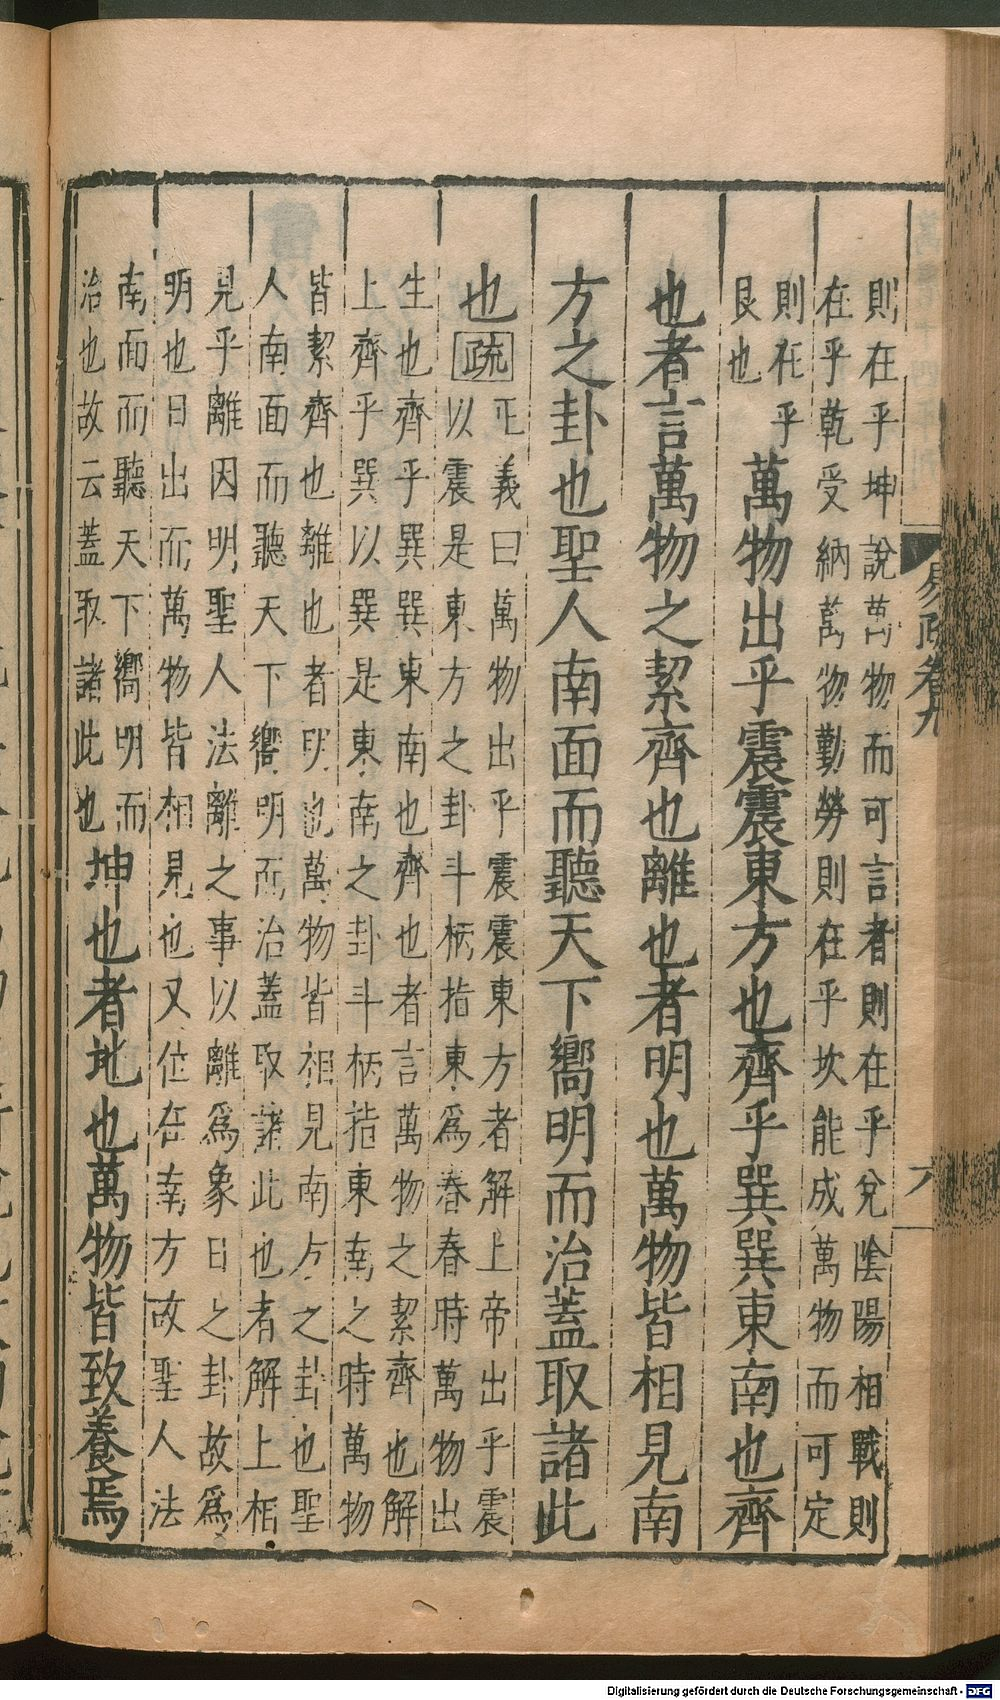 則在乎坤說萬物而可言者則在乎兌陰陽相戰則
在乎乾受納萬物勤勞則在乎坎能成萬物而可定
則在乎
艮也
萬物出乎震震東方也齊乎巽巽東南也齊
也者言萬物之絜齊也離也者明也萬物皆相見南
方之卦也聖人南面而聽天下嚮明而治蓋取諸此
也疏
正義曰萬物出乎震震東方者解上帝出乎震
以震是東方之卦斗柄指東爲春春時萬物出
生也齊乎巽巽東南也齊也者言萬物之絜齊也解
上齊乎巽以巽是東南之卦斗柄指東南之時萬物
皆絜齊也離也者明也萬物皆相見南方之卦也聖
人南面而聽天下嚮明而治蓋取諸此也者解上相
見乎離因明聖人法離之事以離爲象日之卦故爲
明也日出而萬物皆相見也又位在南方故聖人法
南面而聽天下嚮明而
治也故云蓋取諸此也
坤也者地也萬物皆致養焉
易疏卷九
六
Digitalisierung gefördert durch die Deutsche Forschungsgemeinschaft - DFG